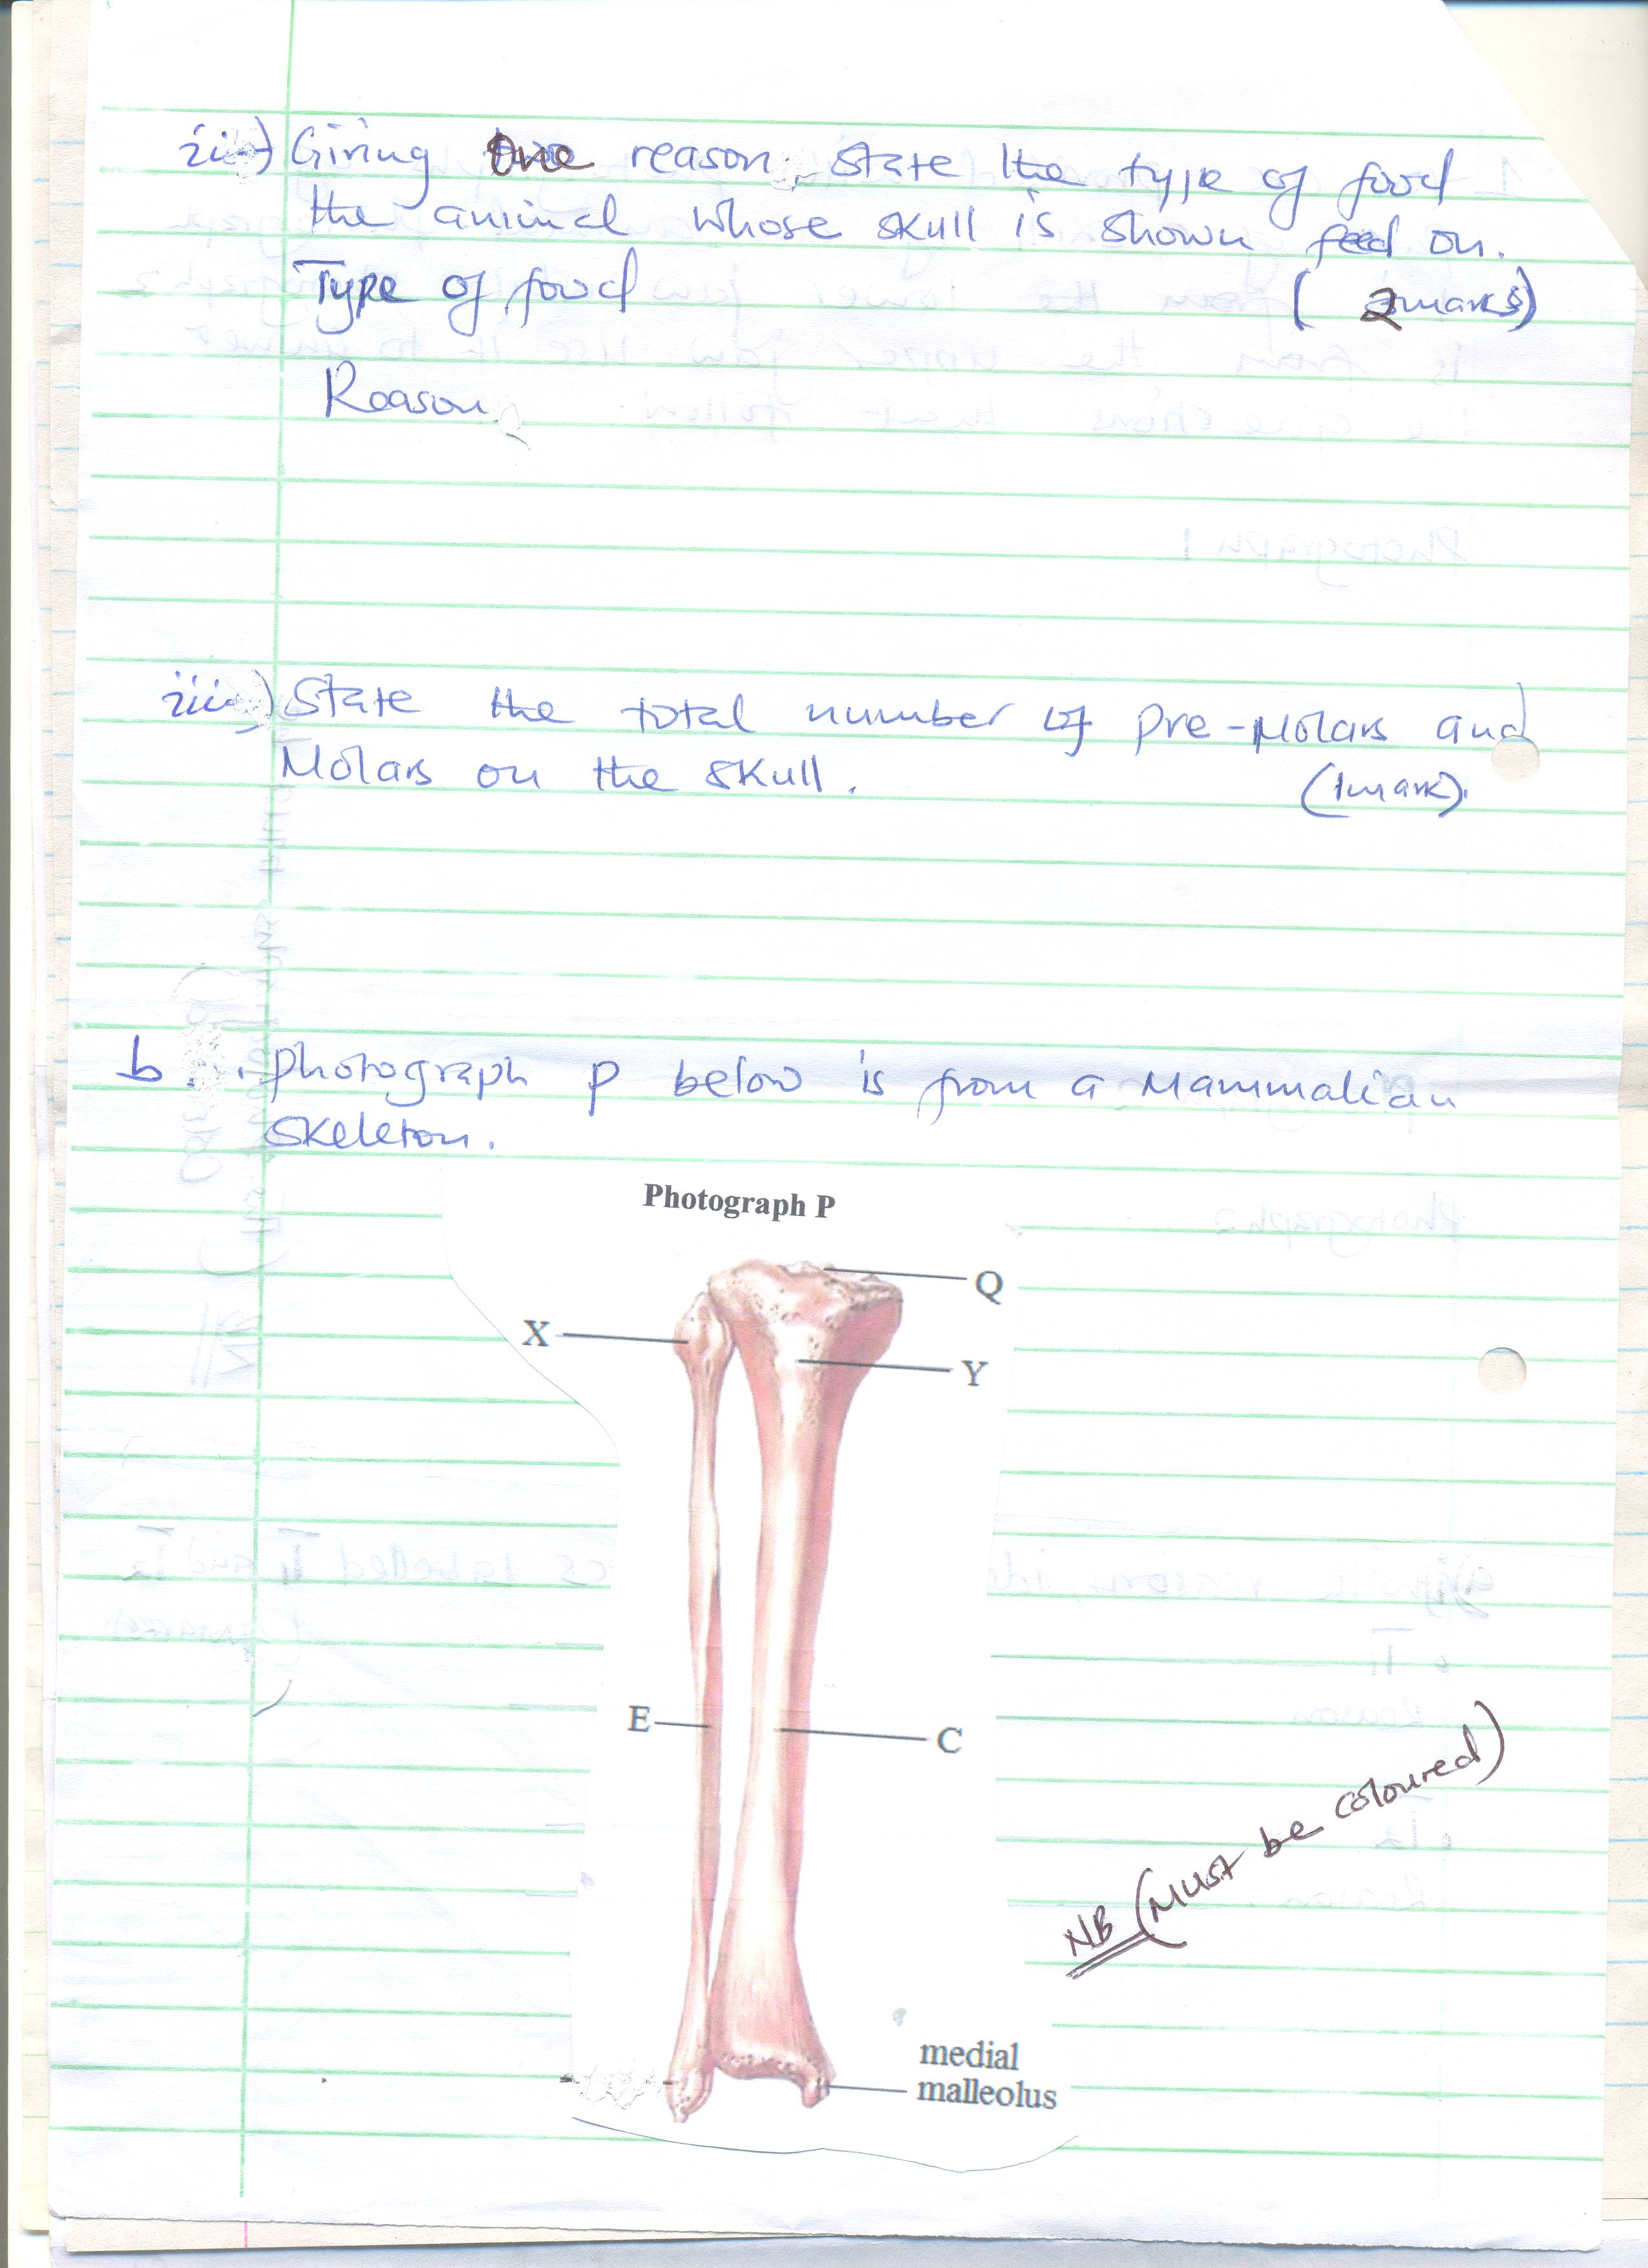 ii) Giving One reason, state the type of food
the animal whose skull is shown feed on.
Type of food (2marks)
Reason
iii) State the total number of Pre-Molars and
Molars on the skull. (1mark).
b. Photograph P below is from a Mammalian
Skeleton.
Photograph P
Q
X
Y
E
C
NB (Must be coloured)
medial
malleolus